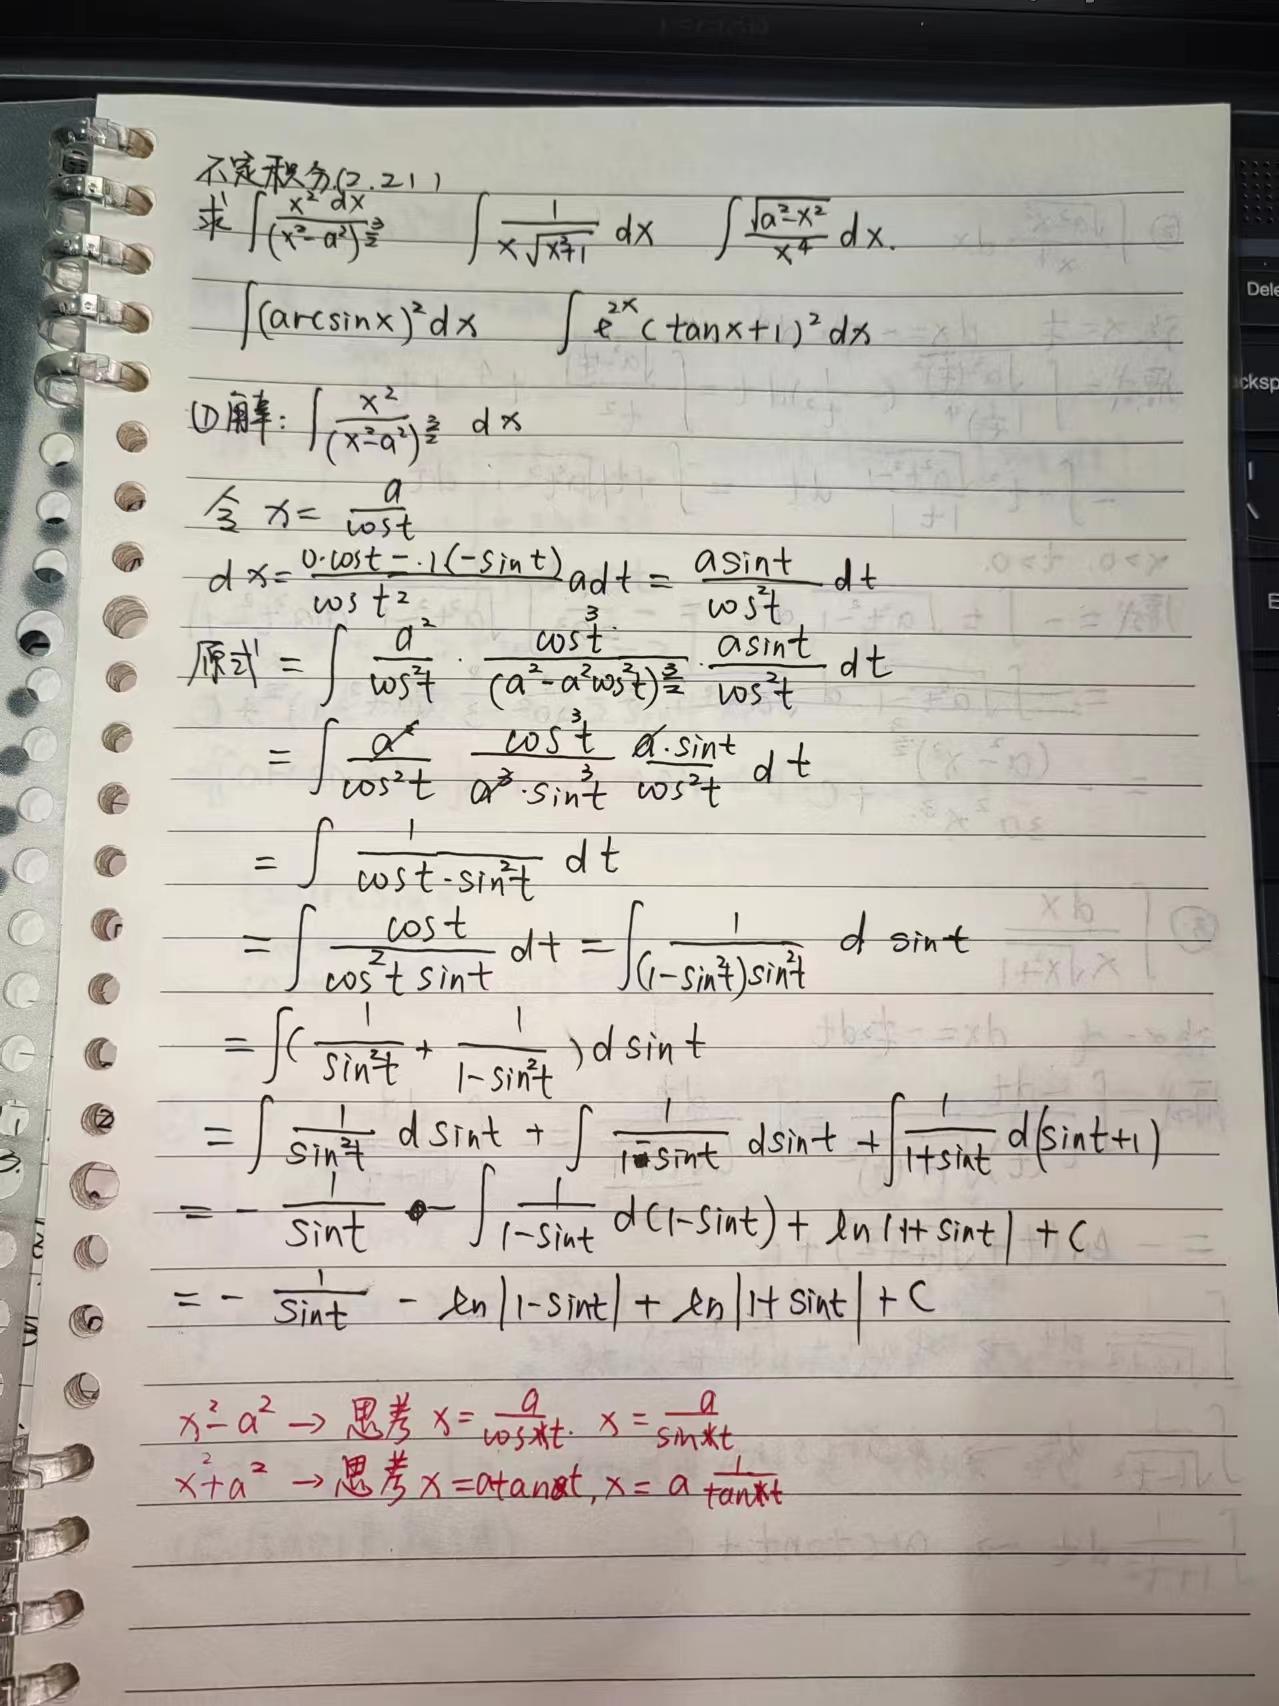 不定积分(2.21)
求 ∫ x² dx / (x²-a²)^(3/2)   ∫ 1 / (x√(x²+1)) dx   ∫ √(a²-x²) / x⁴ dx.
∫(arcsinx)²dx   ∫ e^(2x) (tanx+1)²dx
①解: ∫ x² / (x²-a²)^(3/2) dx
令 x = a / cost
dx = (0·cost - ·1(-sint)) / cos t² adt = asint / cos²t dt
原式 = ∫ a² / cos²t · cos³t / (a²-a²cos²t)^(3/2) · asint / cos²t dt
= ∫ a² / cos²t cos³t / (a³·sin³t) a·sint / cos²t dt
= ∫ 1 / (cost·sin²t) dt
= ∫ cost / (cos²t sint) dt = ∫ 1 / ((1-sin²t)sin²t) d sint
= ∫( 1 / sin²t + 1 / (1-sin²t) ) d sint
= ∫ 1 / sin²t d sint + ∫ 1 / (1-sint) dsint + ∫ 1 / (1+sint) d(sint+1)
= - 1 / sint - ∫ 1 / (1-sint) d(1-sint) + ln|1+sint| + C
= - 1 / sint - ln|1-sint| + ln|1+sint| + C
x²-a² → 思考 x = a / cost. x = a / sint
x²+a² → 思考 x = atant, x = a 1 / tant
Dele
ckspa
\
E